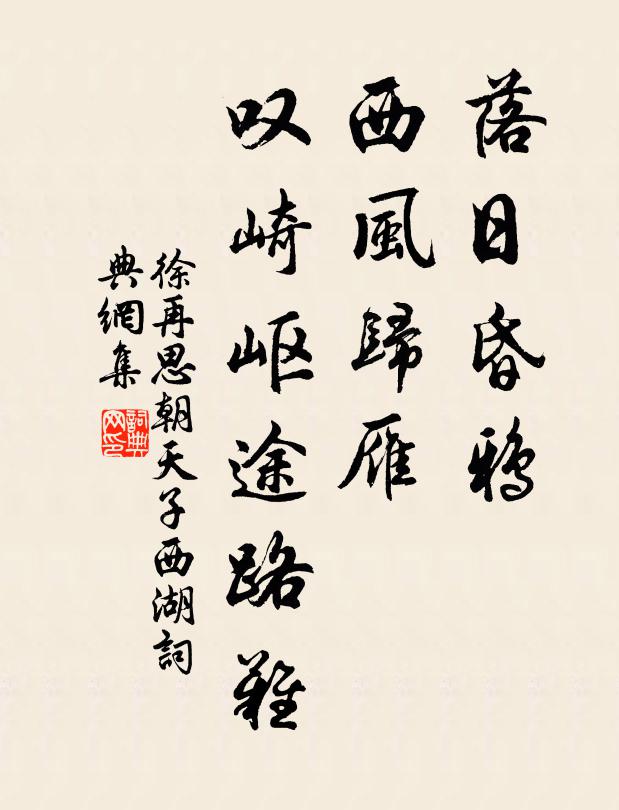 落日昏鴉
西風歸雁
叹崎岖途路難
徐再思朝天子西湖詞
典網集
詞典网印